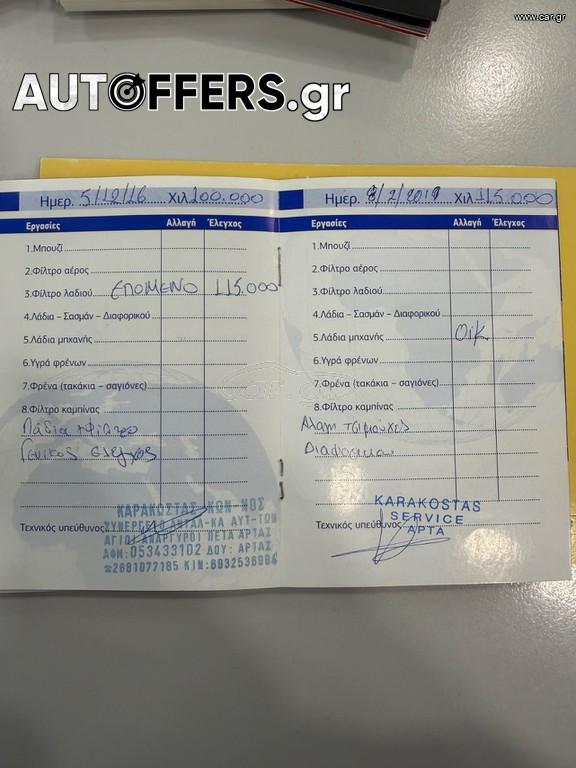 www.car.gr
AUTOFFERS.gr
Ημερ. 5/12/16 Χιλ 100.000
Εργασίες Αλλαγή Έλεγχος
1.Μπουζί
2.Φίλτρο αέρος
3.Φίλτρο λαδιού ΕΠΟΜΕΝΟ 115.000
4.Λάδια – Σασμάν – Διαφορικού
5.Λάδια μηχανής
6.Υγρά φρένων
7.Φρένα (τακάκια – σαγιόνες)
8.Φίλτρο καμπίνας
Λάδια +Φιλτρο
Γενικος ελεγχος
Τεχνικός υπεύθυνος
ΚΑΡΑΚΟΣΤΑΣ ΚΩΝ-ΝΟΣ
ΣΥΝΕΡΓΕΙΟ ΑΝΤΑΛ-ΚΑ ΑΥΤ-ΤΩΝ
ΑΓΙΟΙ ΑΝΑΡΓΥΡΟΙ ΠΕΤΑ ΑΡΤΑΣ
ΑΦΜ: 053433102 ΔΟΥ: ΑΡΤΑΣ
☎2681077185 ΚΙΝ: 6932536984
Ημερ. 8/2/2019 Χιλ 115.000
Εργασίες Αλλαγή Έλεγχος
1.Μπουζί
2.Φίλτρο αέρος
3.Φίλτρο λαδιού
4.Λάδια – Σασμάν – Διαφορικού
5.Λάδια μηχανής Οικ
6.Υγρά φρένων
7.Φρένα (τακάκια – σαγιόνες)
8.Φίλτρο καμπίνας
Αλαγη τσιμουχες
Διαφορικου
Τεχνικός υπεύθυνος
KARAKOSTAS
SERVICE
ΑΡΤΑ